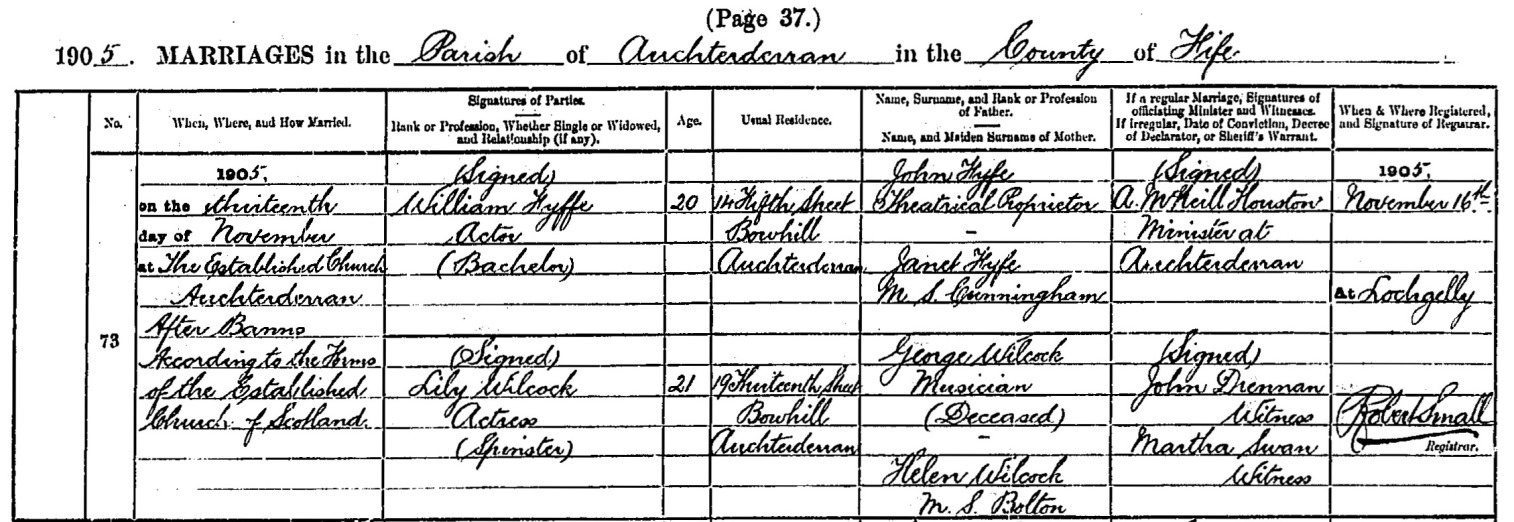 (Page 37.)
1905. MARRIAGES in the Parish of Auchterderran in the County of Fife
No.
When, Where, and How Married.
Signatures of Parties.
Rank or Profession, Whether Single or Widowed,
and Relationship (if any).
Age.
Usual Residence.
Name, Surname, and Rank or Profession
of Father.
Name, and Maiden Surname of Mother.
If a regular Marriage, Signatures of
officiating Minister and Witnesses.
If irregular, Date of Conviction, Decree
of Declarator, or Sheriff's Warrant.
When & Where Registered,
and Signature of Registrar.
73
1905,
on the thirteenth
day of November
at The Established Church
Auchterderran
After Banns
According to the Forms
of the Established
Church of Scotland
(Signed)
William Fyffe
Actor
(Bachelor)
(Signed)
Lily Wilcock
Actress
(Spinster)
20
21
14 Fifth Street
Bowhill
Auchterderran
19 Thirteenth Street
Bowhill
Auchterderran
John Fyfe
Theatrical Proprietor
-
Janet Fyfe
M. S. Cunningham
George Wilcock
Musician
(Deceased)
-
Helen Wilcock
M. S. Bolton
(Signed)
A. McNeill Houston
Minister at
Auchterderran
(Signed)
John Drennan
Witness
Martha Swan
Witness
1905,
November 16th
At Lochgelly
Robert Small
Registrar.